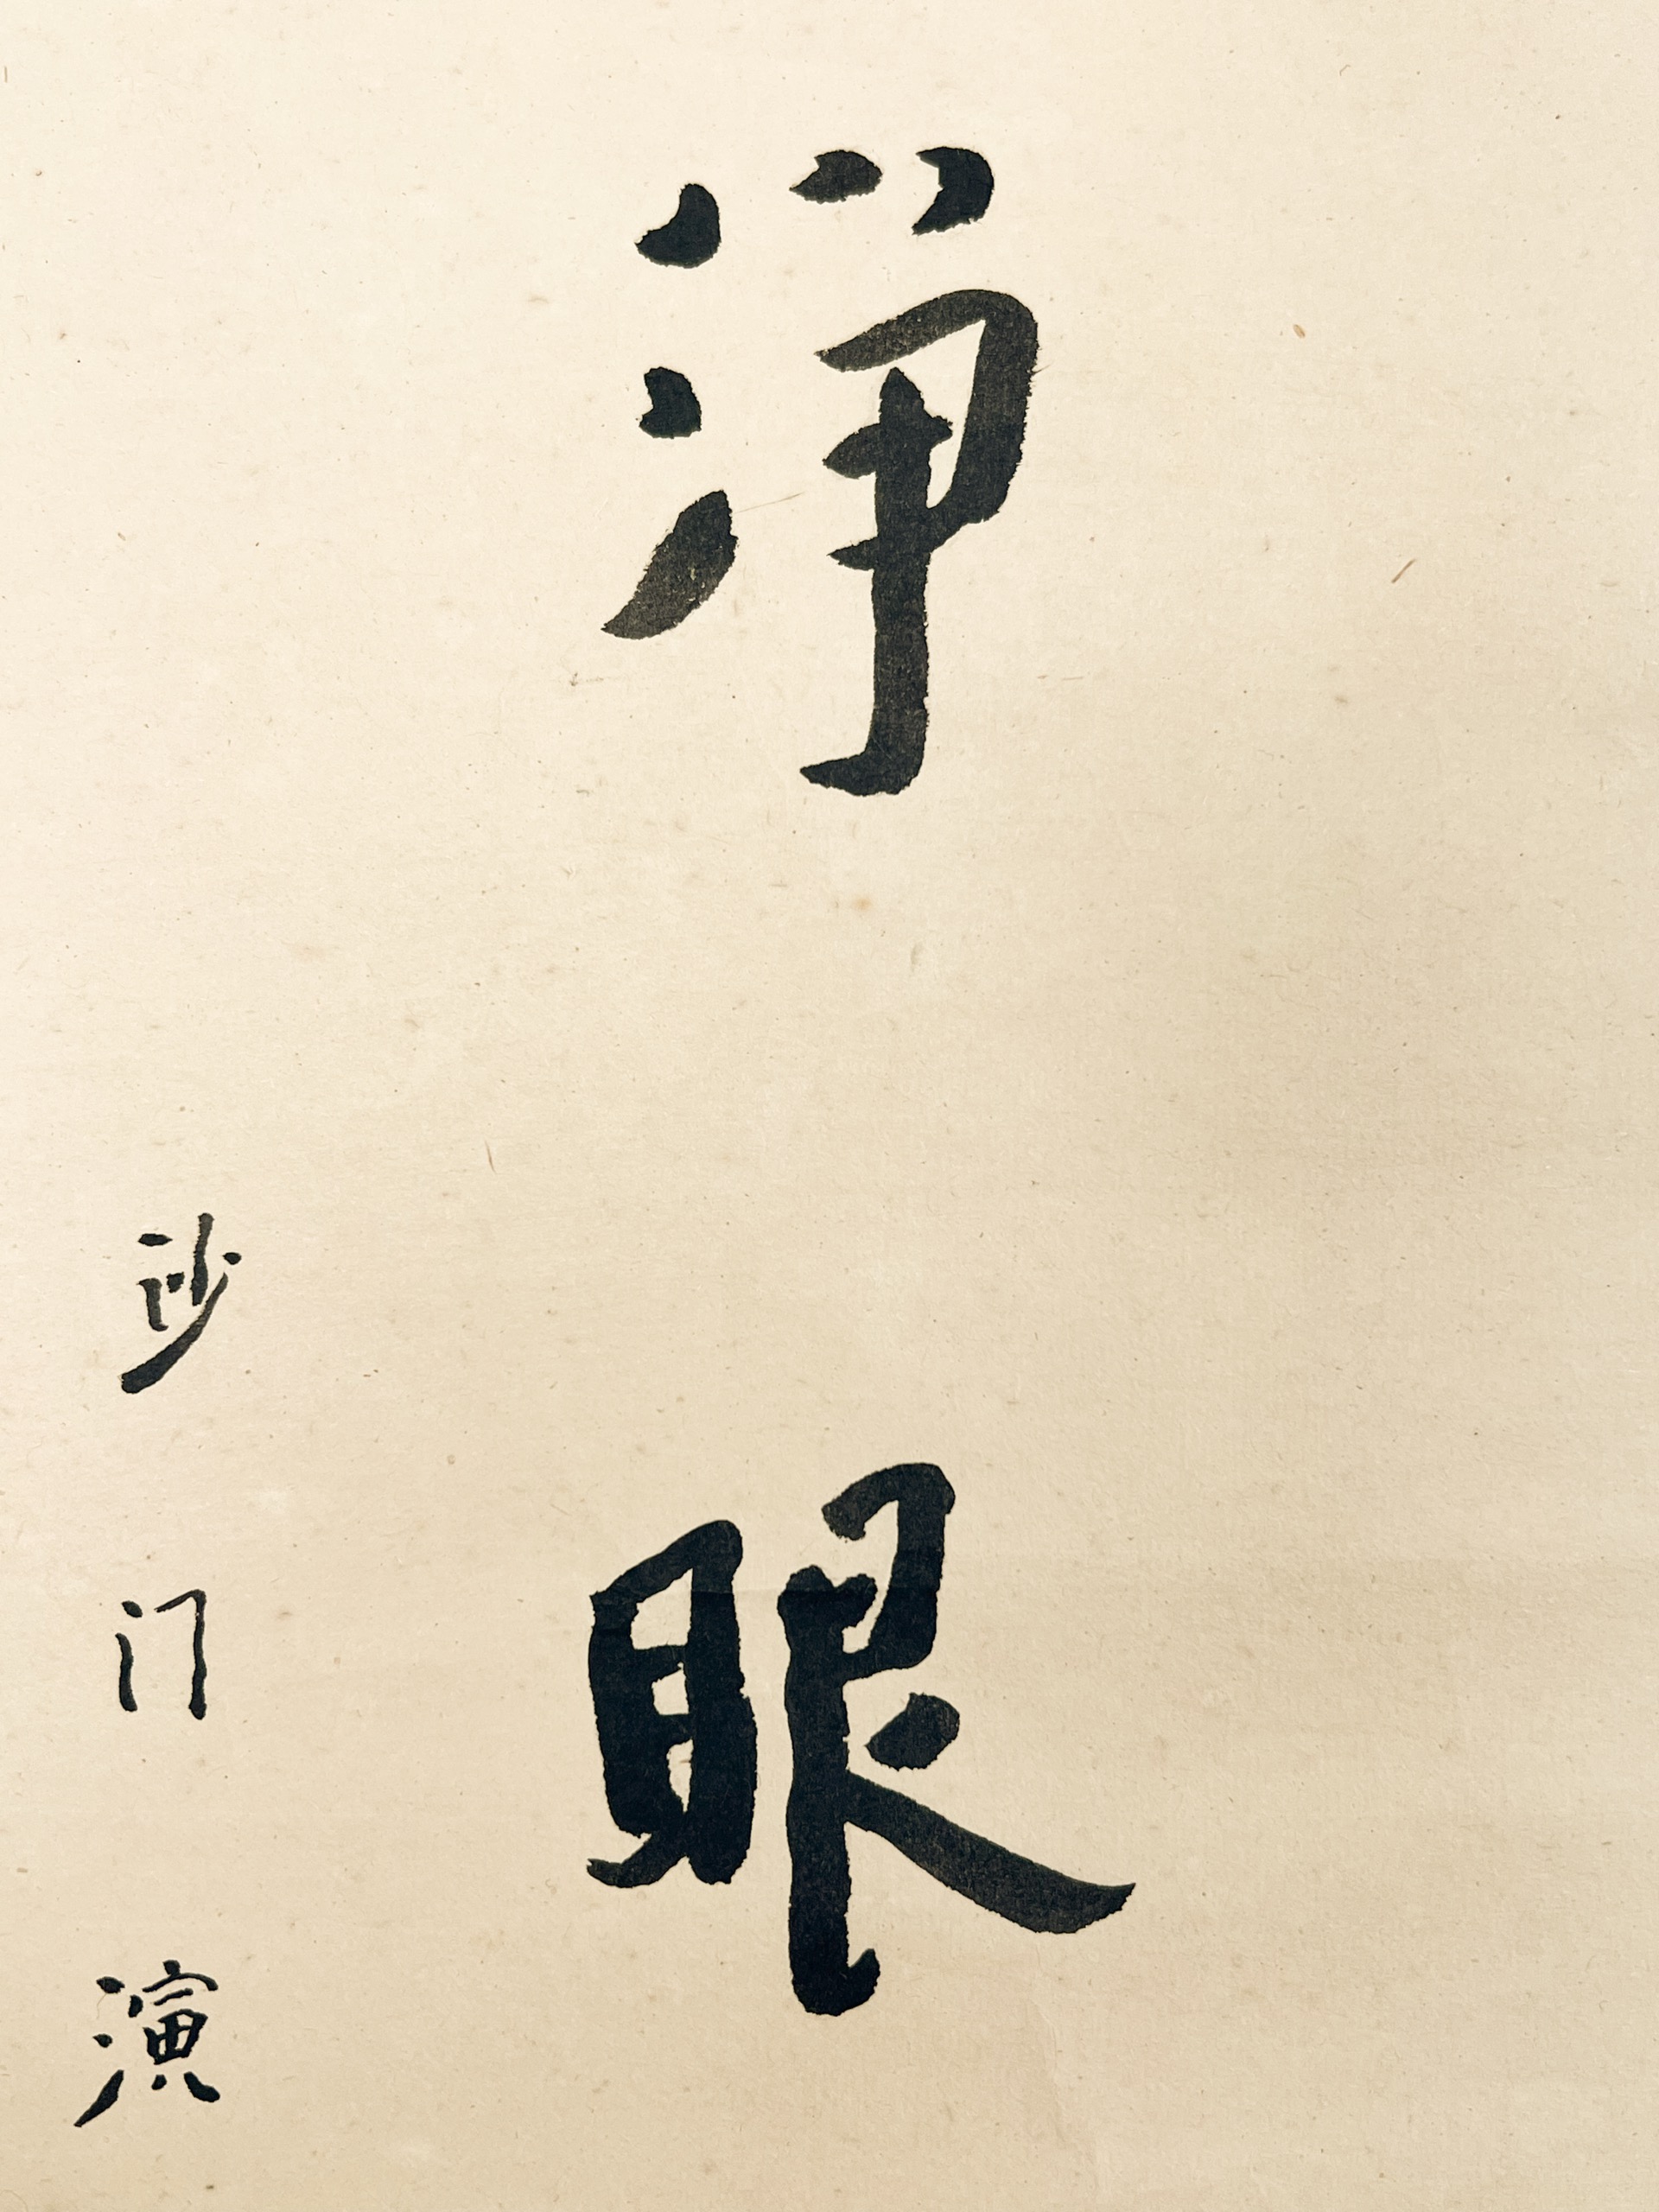 淨眼
沙门演